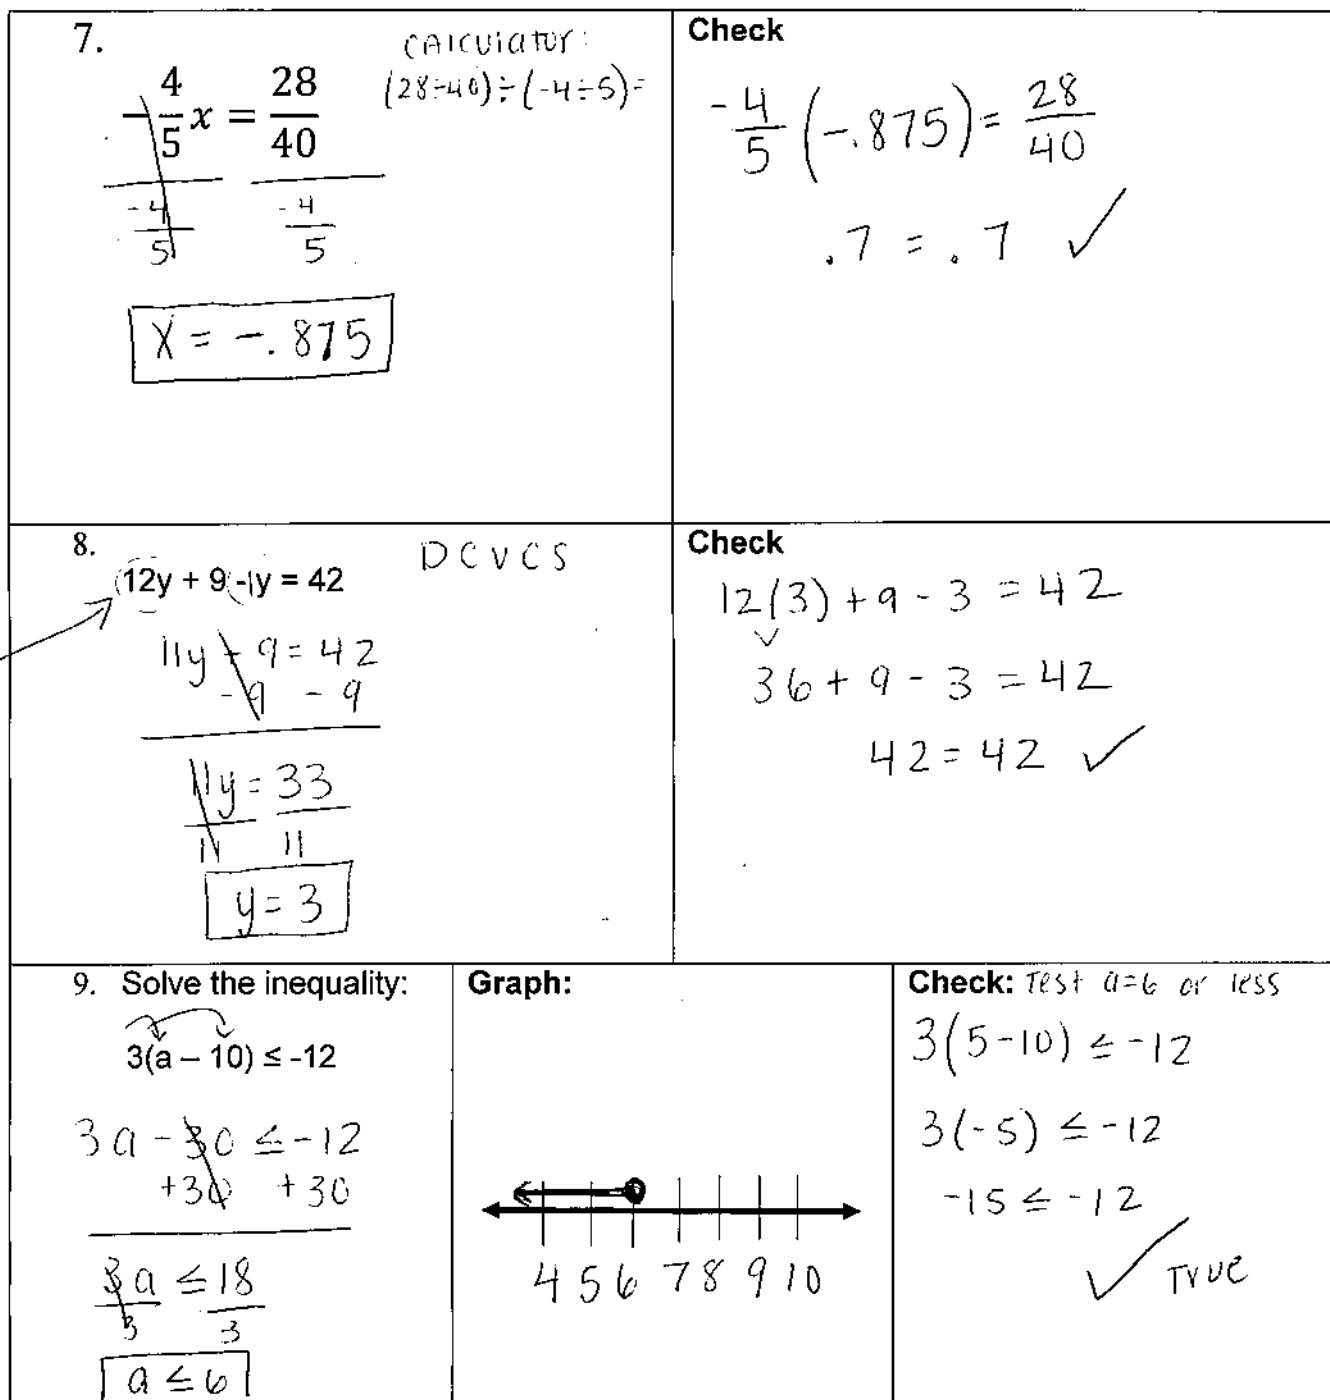 7.
CAlculator:
(28÷40)÷(-4÷5)=
-4/5 x = 28/40
-4/5 -4/5
X = -.875
Check
-4/5 (-.875) = 28/40
.7 = .7 ✓
8.
DCVCS
12y + 9 -1y = 42
11y + 9 = 42
-9 - 9
11y = 33
11 11
y = 3
Check
12(3) + 9 - 3 = 42
36 + 9 - 3 = 42
42 = 42 ✓
9. Solve the inequality:
3(a – 10) ≤ -12
3a - 30 ≤ -12
+30 +30
3a ≤ 18
3 3
a ≤ 6
Graph:
4 5 6 7 8 9 10
Check: Test a=6 or less
3(5-10) ≤ -12
3(-5) ≤ -12
-15 ≤ -12
✓ True